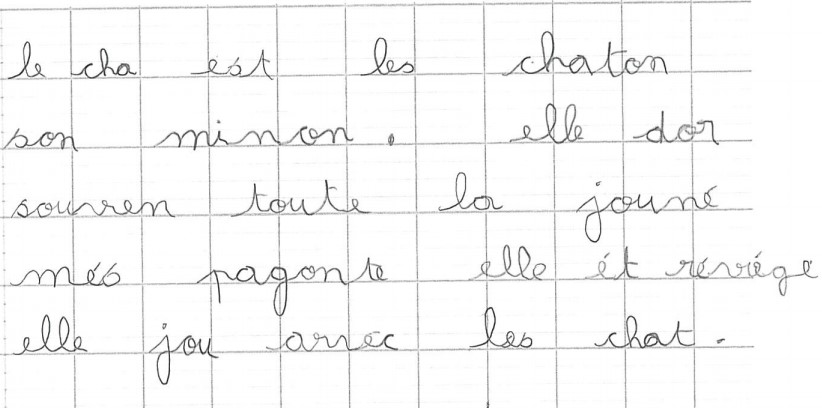 le cha est les chaton
son minon. elle dor
souven toute la jouné
més pagonte elle ét révégé
elle jou avec les chat.